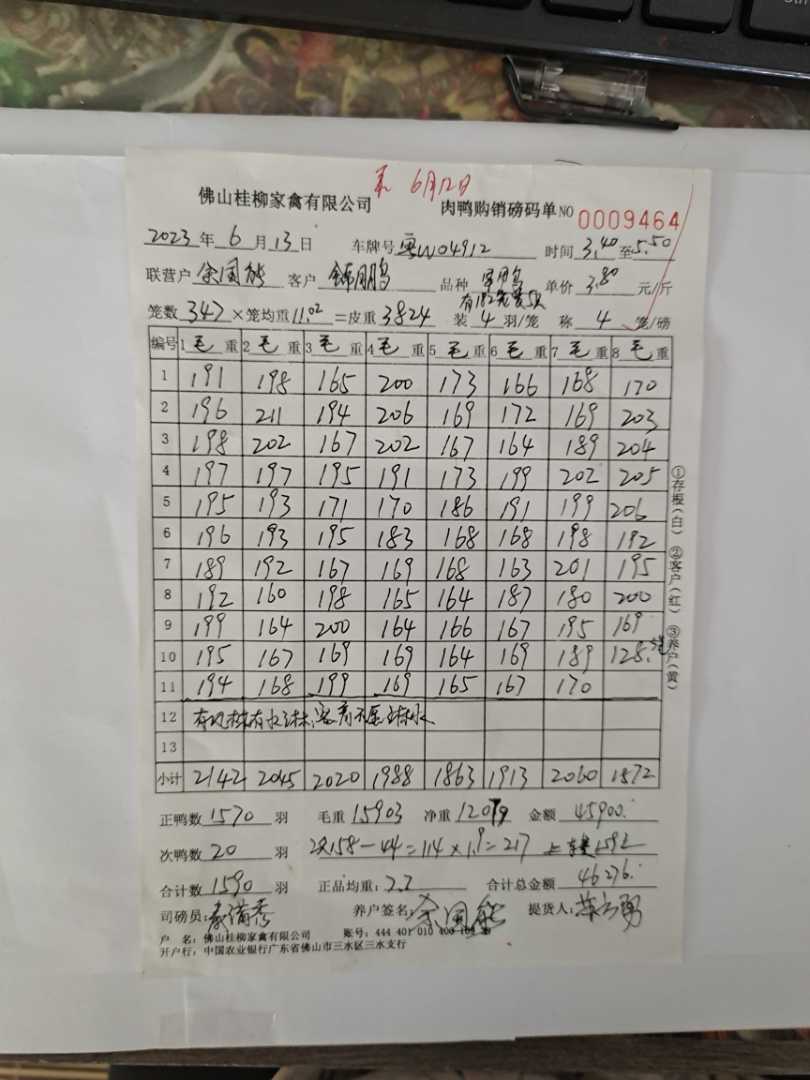 6月12日
佛山桂柳家禽有限公司 肉鸭购销磅码单NO 0009464
2023年6月13日 车牌号粤W04912 时间3.40至5.50
联营户余国能 客户锦鹏 品种 单价3.80元/斤
笼数347×笼均重11.02=皮重3824 装4羽/笼 称4笼/磅
编号 1毛重 2毛重 3毛重 4毛重 5毛重 6毛重 7毛重 8毛重
1 191 198 165 200 173 166 168 170
2 196 211 194 206 169 172 169 203
3 198 202 167 202 167 164 189 204
4 197 197 195 191 173 199 202 205
5 195 193 171 170 186 191 199 206
6 196 193 195 183 168 168 198 192
7 189 192 167 169 168 163 201 195
8 192 160 198 165 164 187 180 200
9 199 164 200 164 166 167 195 169
10 195 167 169 169 164 169 189 128.
11 194 168 199 169 165 167 170
12
13
小计 2142 2045 2020 1988 1863 1913 2060 1872
正鸭数1570羽 毛重15903 净重12079 金额45900.
次鸭数20羽 次158-44=114×1.9=217
合计数1590羽 正品均重:2.2 合计总金额46276.
司磅员: 养户签名:余国能 提货人:
户 名:佛山桂柳家禽有限公司 账号:444 401 010 400
开户行:中国农业银行广东省佛山市三水区三水支行
①存根(白) ②客户(红) ③养户(黄)